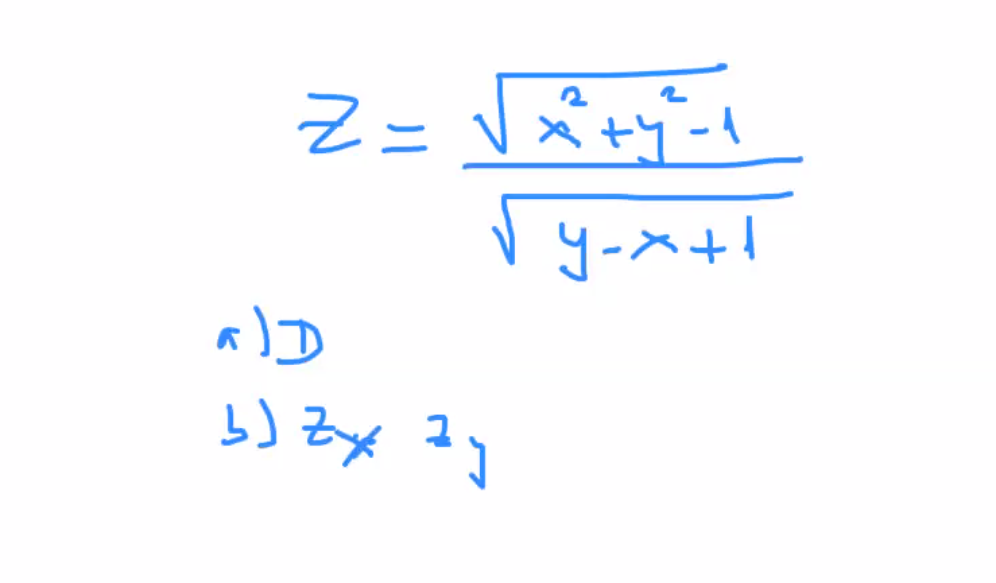 z = √(x²+y²-1) / √(y-x+1)
a) D
b) zₓ z_y